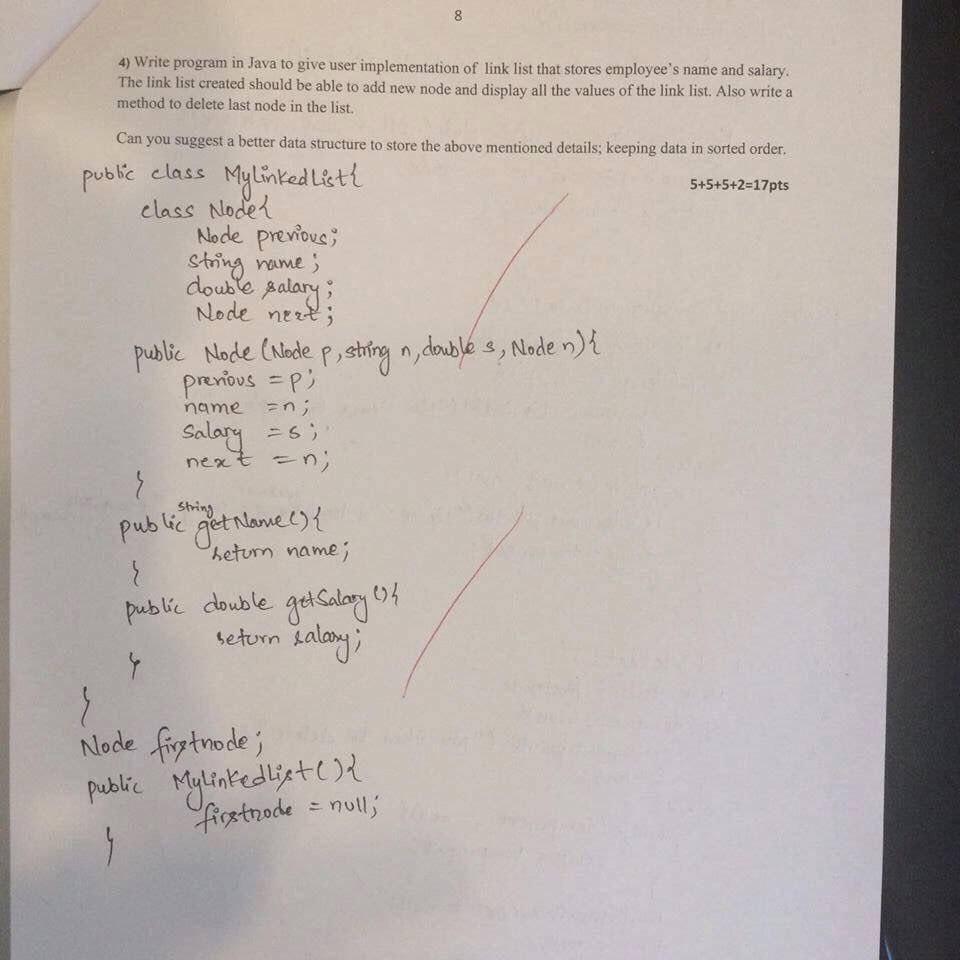 8
4) Write program in Java to give user implementation of link list that stores employee's name and salary.
The link list created should be able to add new node and display all the values of the link list. Also write a
method to delete last node in the list.
Can you suggest a better data structure to store the above mentioned details; keeping data in sorted order.
5+5+5+2=17pts
public class MyLinkedList{
class Node{
Node previous;
string name;
double salary;
Node next;
public Node (Node p, string n, double s, Node n){
previous = p;
name = n;
salary = s;
next = n;
}
public string getName(){
return name;
}
public double getSalary(){
return salary;
}
}
Node firstnode;
public MyLinkedList(){
firstnode = null;
}